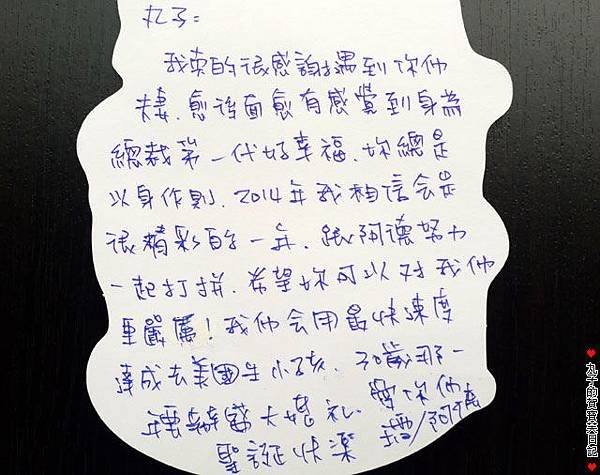 丸子:
我真的很感謝遇到你們
夫妻,愈後面愈有感覺到身為
總裁第一代好幸福.妳總是
以身作則.2014年我相信會是
很精彩的一年.跟阿德努力
一起打拼.希望妳可以对我们
更嚴厲!我们会用最快速度
達成去美國生小孩.30歲那一
年辦盛大婚礼.愛你们
聖誕快樂 /阿德